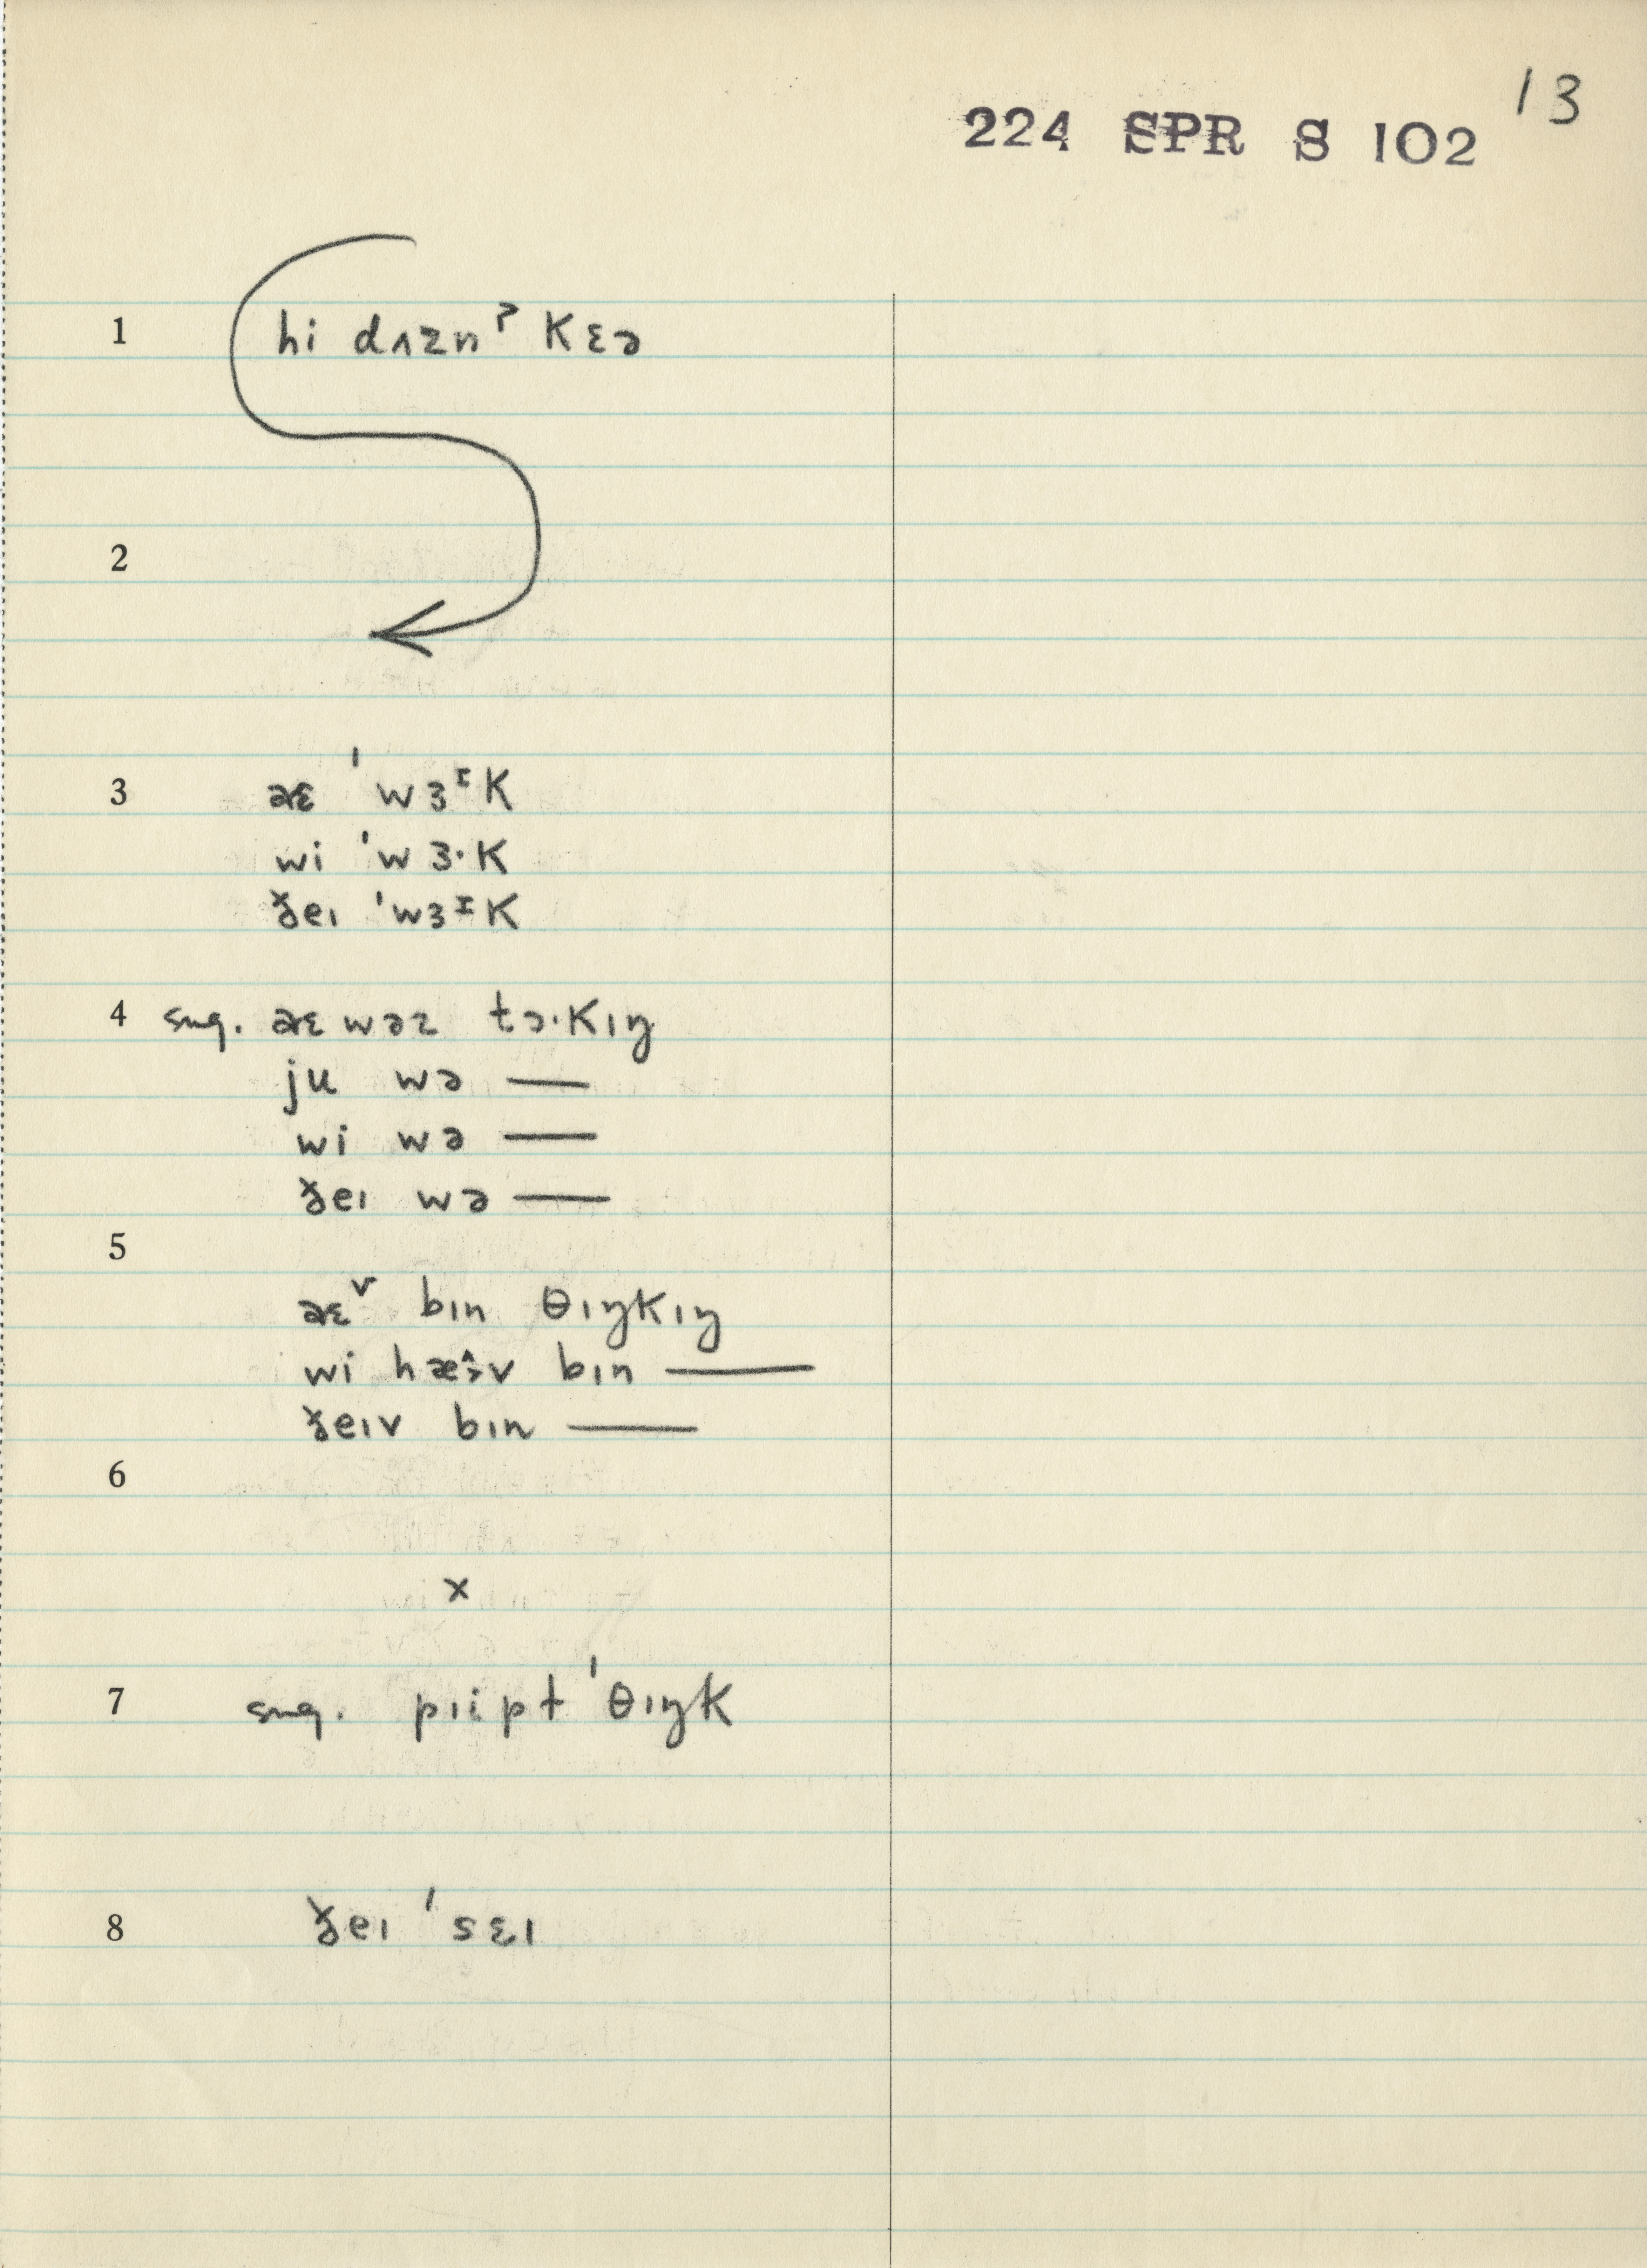 13
224 SPR S 102
1 hi dʌznˀ kɛə
2
3 aɛ ˈwɜᶦk
wi ˈwɜ·k
ðeɪ ˈwɜᶦk
4 sug. aɛ wəz tɔ·kɪŋ
ju wə —
wi wə —
ðeɪ wə —
5
aɛᵛ bɪn θɪŋkɪŋ
wi hæ̂·v bɪn —
ðeɪv bɪn —
6
x
7 sug. pɪipt ˈθɪŋk
8 ðeɪ ˈsɛɪ